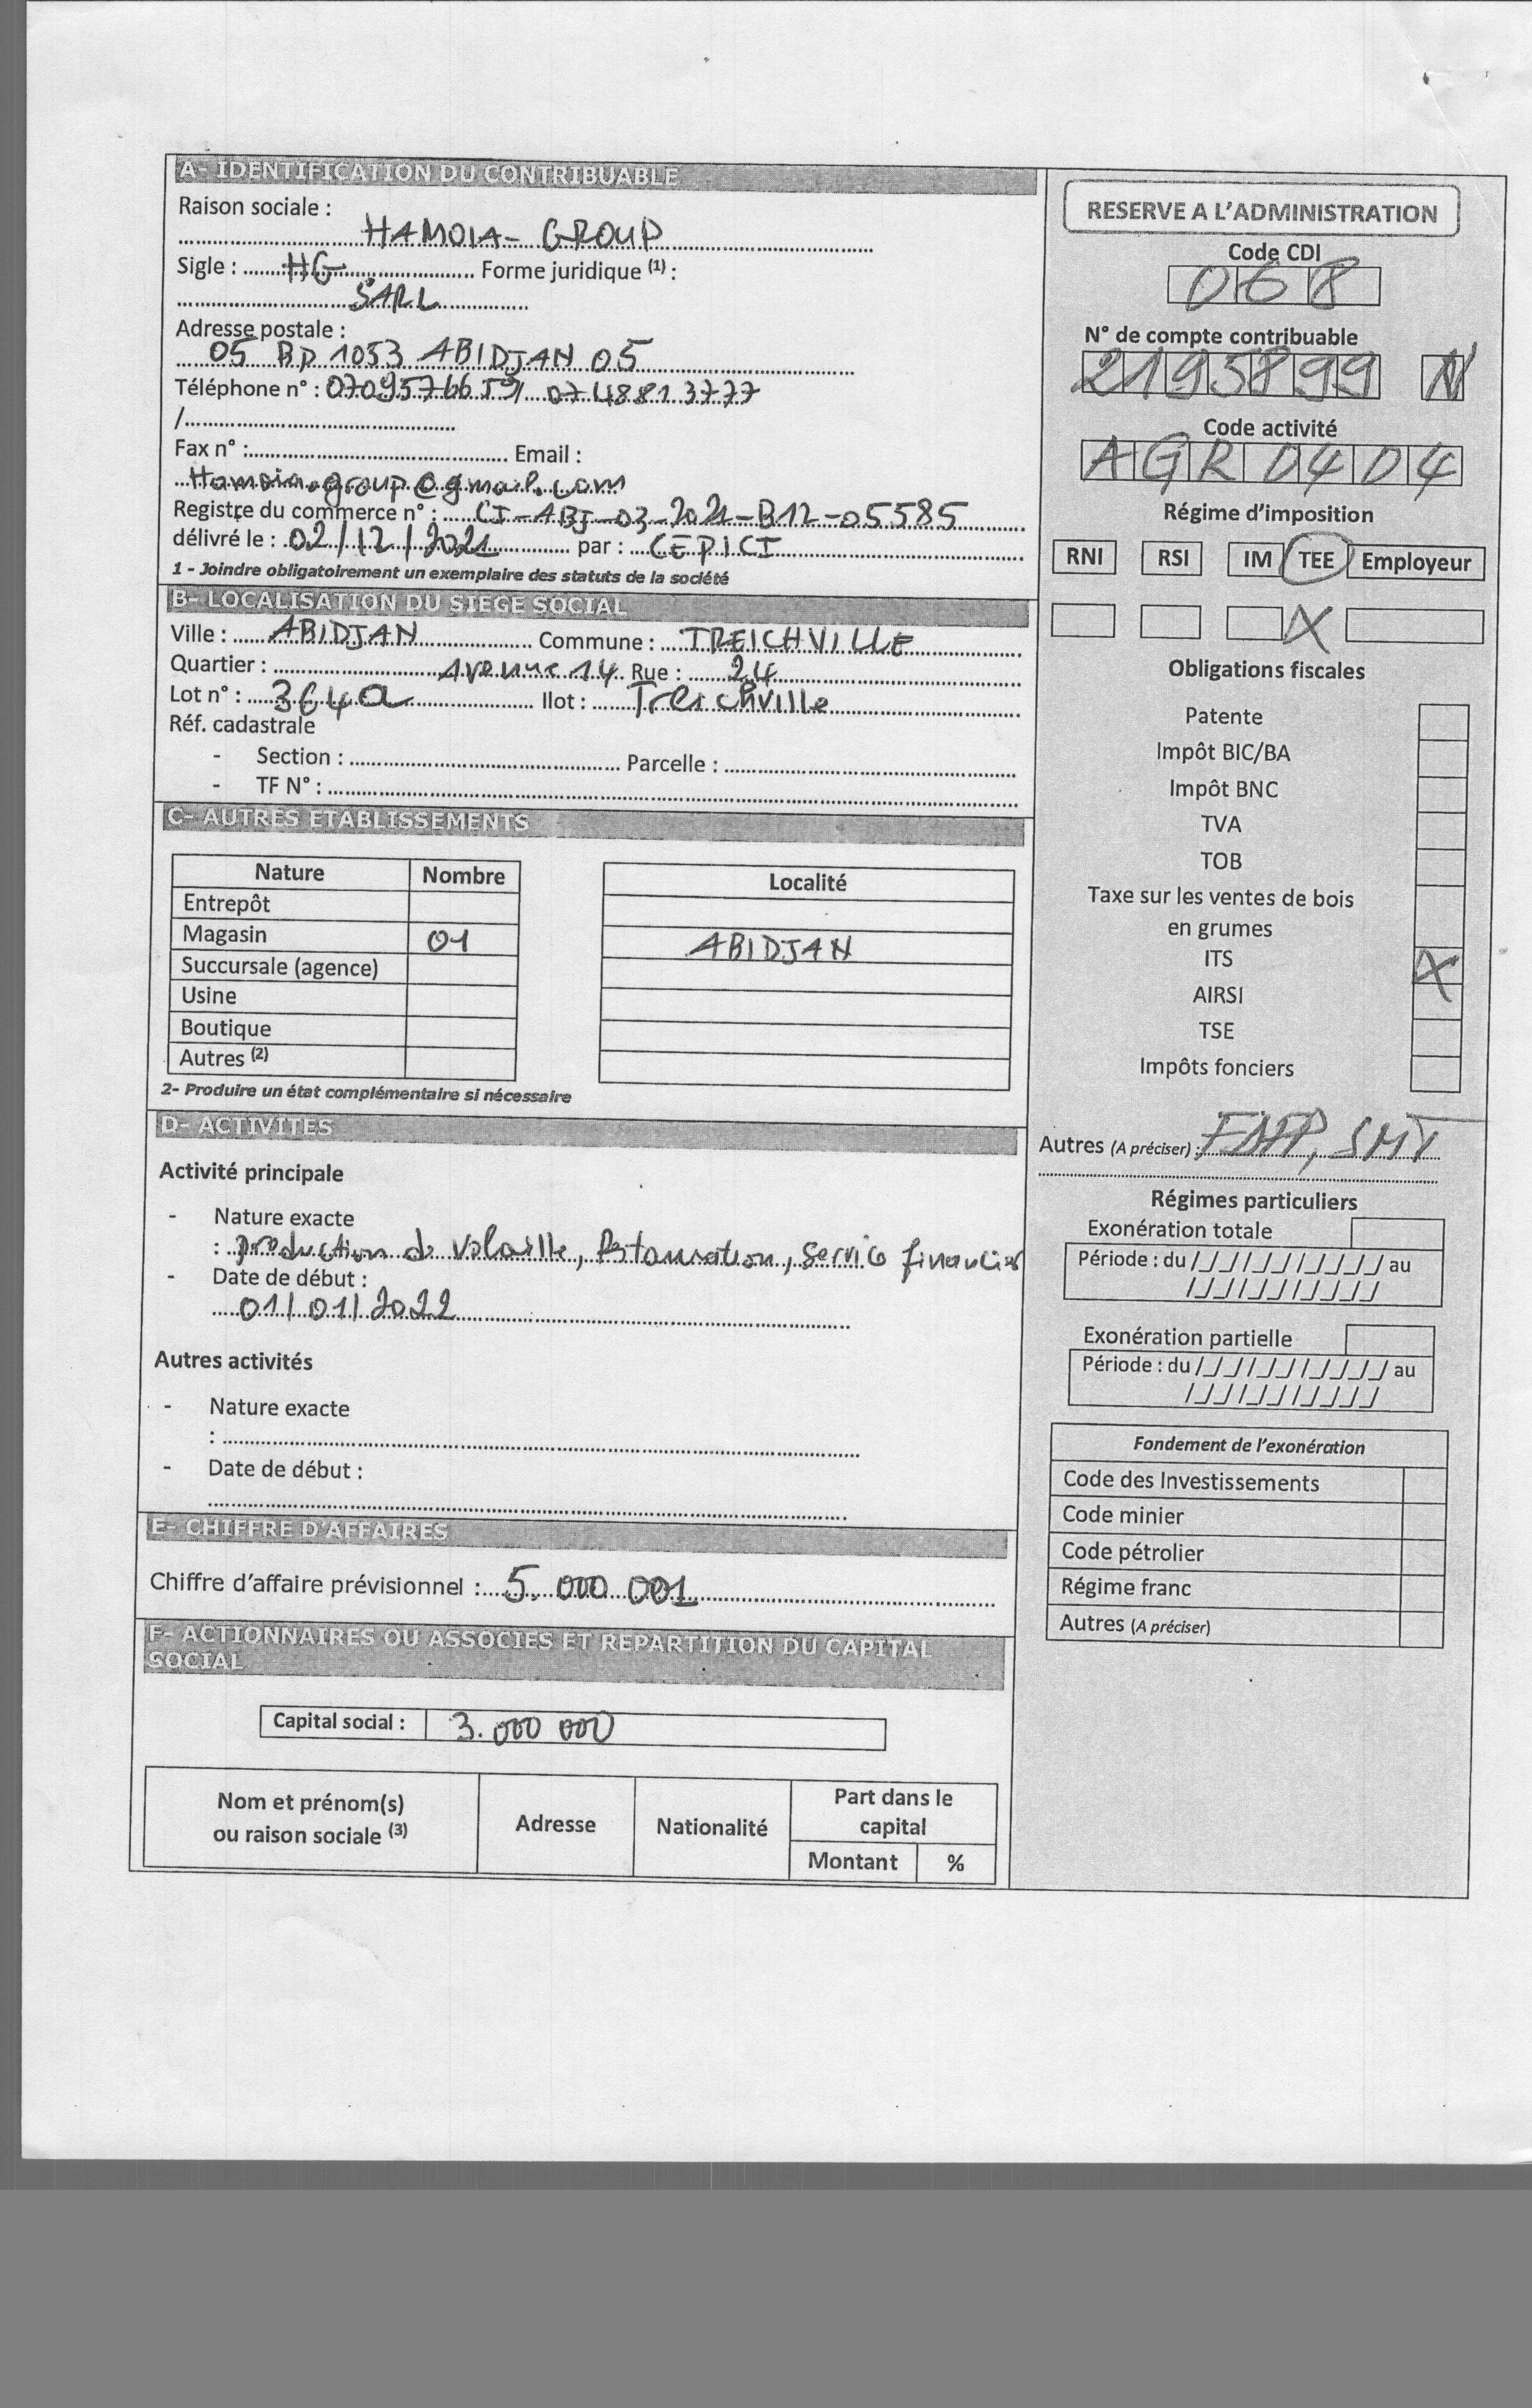 A- IDENTIFICATION DU CONTRIBUABLE
Raison sociale :
HAMOIA- GROUP
Sigle : HG Forme juridique (1) :
SARL
Adresse postale :
05 BP 1053 ABIDJAN 05
Téléphone n° : 0709576659/ 0748813777
/
Fax n° : Email :
Hamoia.group@gmail.com
Registre du commerce n° : CI-ABJ-03-2021-B12-05585
délivré le : 02/12/2021 par : CEPICI
1 - Joindre obligatoirement un exemplaire des statuts de la société
B- LOCALISATION DU SIEGE SOCIAL
Ville : ABIDJAN Commune : TREICHVILLE
Quartier : Avenue 14 Rue : 24
Lot n° : 364a Ilot : Treichville
Réf. cadastrale
- Section : Parcelle :
- TF N° :
C- AUTRES ETABLISSEMENTS
Nature Nombre Localité
Entrepôt
Magasin 01 ABIDJAN
Succursale (agence)
Usine
Boutique
Autres (2)
2- Produire un état complémentaire si nécessaire
D- ACTIVITES
Activité principale
- Nature exacte
: production de volaille, Restauration, service financier
- Date de début :
01/01/2022
Autres activités
- Nature exacte
:
- Date de début :
E- CHIFFRE D'AFFAIRES
Chiffre d'affaire prévisionnel : 5.000 001
F- ACTIONNAIRES OU ASSOCIES ET REPARTITION DU CAPITAL
SOCIAL
Capital social : 3.000 000
Nom et prénom(s)
ou raison sociale (3)
Adresse
Nationalité
Part dans le
capital
Montant %
RESERVE A L'ADMINISTRATION
Code CDI
068
N° de compte contribuable
2195899 N
Code activité
AGR 0404
Régime d'imposition
RNI RSI IM TEE Employeur
X
Obligations fiscales
Patente
Impôt BIC/BA
Impôt BNC
TVA
TOB
Taxe sur les ventes de bois
en grumes
ITS X
AIRSI
TSE
Impôts fonciers
Autres (A préciser) : SMT
Régimes particuliers
Exonération totale
Période : du /_/_/ /_/_/ /_/_/_/_/ au
/_/_/ /_/_/ /_/_/_/_/
Exonération partielle
Période : du /_/_/ /_/_/ /_/_/_/_/ au
/_/_/ /_/_/ /_/_/_/_/
Fondement de l'exonération
Code des Investissements
Code minier
Code pétrolier
Régime franc
Autres (A préciser)